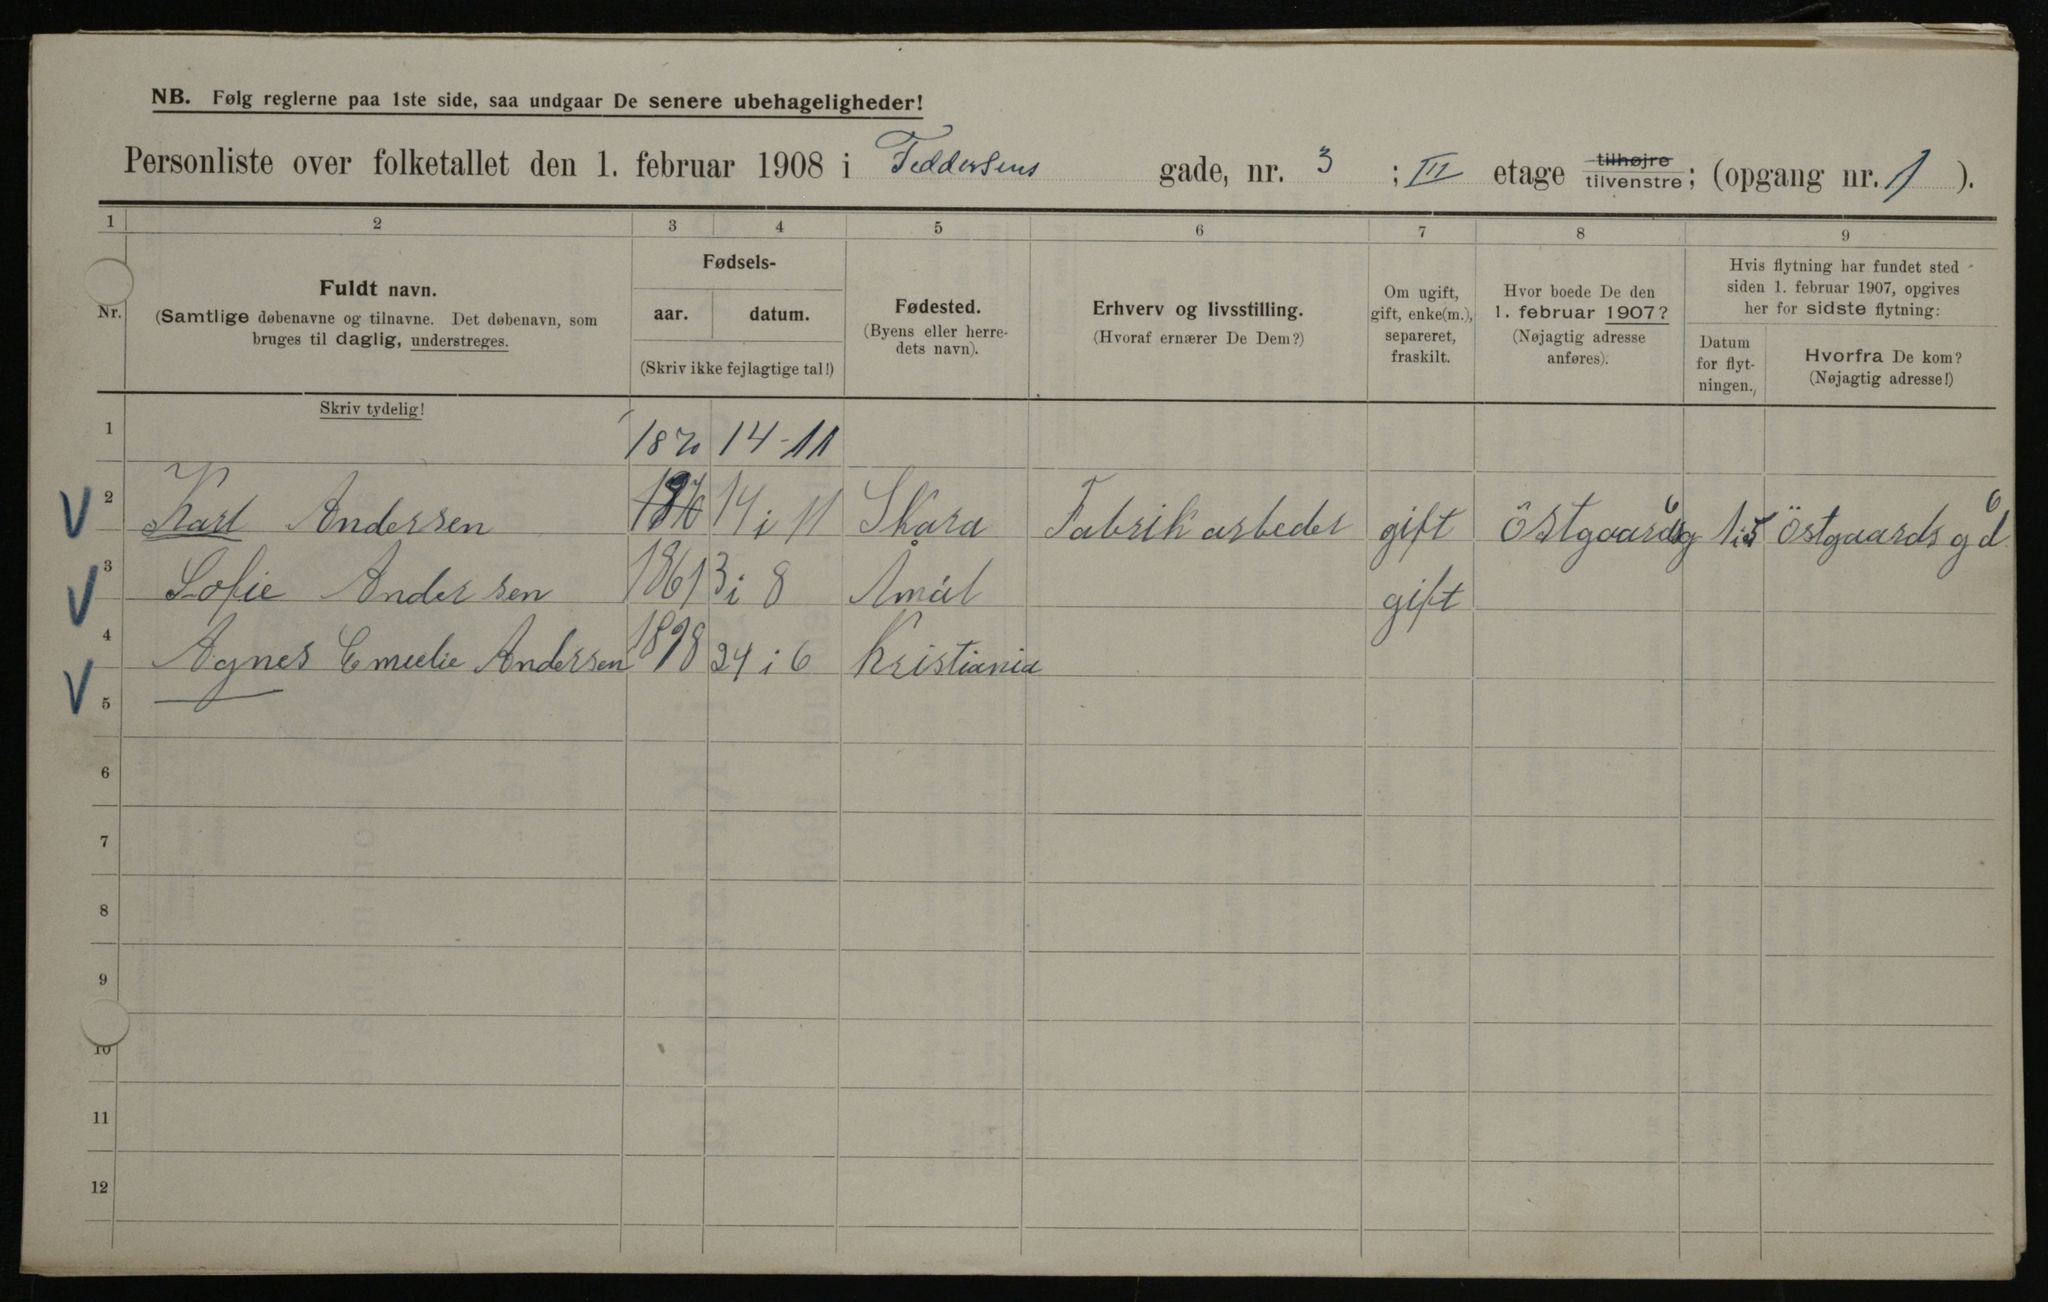 NB. Følg reglerne paa 1ste side, saa undgaar De senere ubehageligheder!
Personliste over folketallet den 1. februar 1908 i Feddersens gade, nr. 3 ; III etage tilhøjre tilvenstre; (opgang nr. 1 ).
1 2 3 4 5 6 7 8 9
Nr.
Fuldt navn.
(Samtlige døbenavne og tilnavne. Det døbenavn, som
bruges til daglig, understreges.
Skriv tydelig!
Fødsels-
aar. datum.
(Skriv ikke fejlagtige tal!)
Fødested.
(Byens eller herre-
dets navn).
Erhverv og livsstilling.
(Hvoraf ernærer De Dem?)
Om ugift,
gift, enke(m.),
separeret,
fraskilt.
Hvor boede De den
1. februar 1907?
(Nøjagtig adresse
anføres).
Hvis flytning har fundet sted
siden 1. februar 1907, opgives
her for sidste flytning:
Datum
for flyt-
ningen.
Hvorfra De kom?
(Nøjagtig adresse!)
1 1870 14-11
2 Karl Andersen 1870 14 i 11 Skara Fabrik arbeder gift Östgaardsg 6 1i5 Östgaards gd 6
3 Sofie Andersen 1861 3 i 8 Åmål gift
4 Agnes Emelie Andersen 1898 24 i 6 Kristiania
5
6
7
8
9
10
11
12